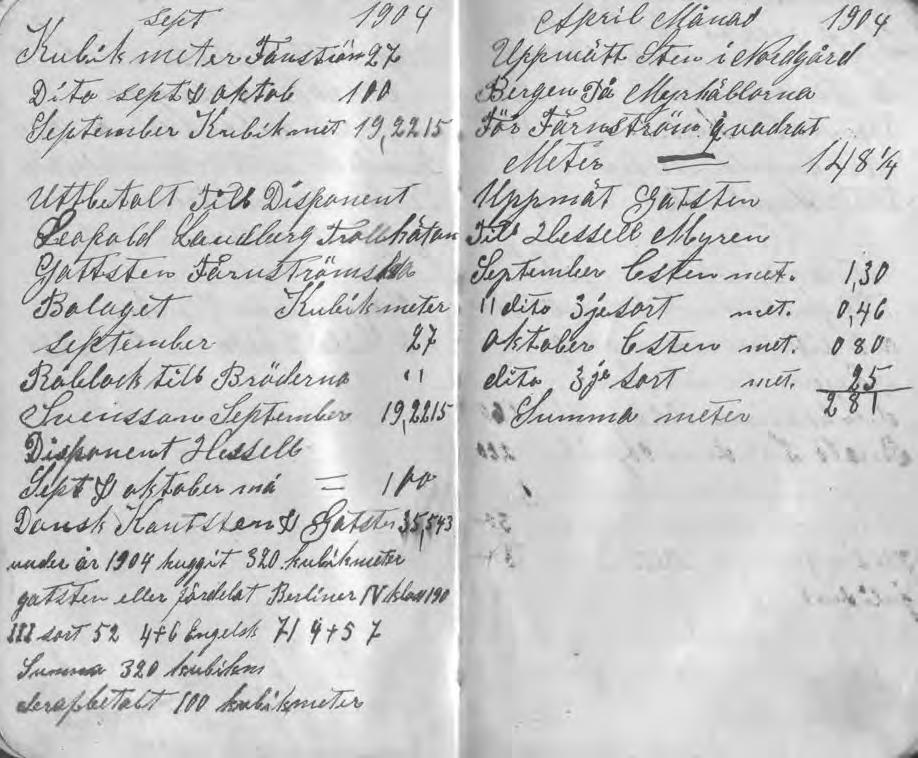 sept 1904
Kubik meter Färnström 27
Dito sept & oktob 100
September Kubikmet 19,2215
Uttbetalt Till Disponent
Leopold Lundberg Trollhätan
Gattsten Färnströmska
Bolaget Kubikmeter
september 27
Råblock till Bröderna "
Svensson September 19,2215
Disponent Hessell
Sept & oktober må = 100
Dansk Kantsten & Gatsten 35,543
under år 1904 huggit 320 kubikmeter
gatsten eller fördelat Berliner IV klass 190
III sort 52 4+6 Engelsk 71 4+5 7
Summa 320 kubikm
derafbetalt 100 kubikmeter
April Månad 1904
Uppmätt Sten i Nordgård
Bergen På Myrhällorna
För Färnström qvadrat
Meter 148 1/4
Uppmät Gatsten
Till Hessell Myren
September Esten met. 1,30
" dito 3je sort met. 0,46
oktober Esten met. 0 80
dito 3je sort met. 25
Summa meter 2 81